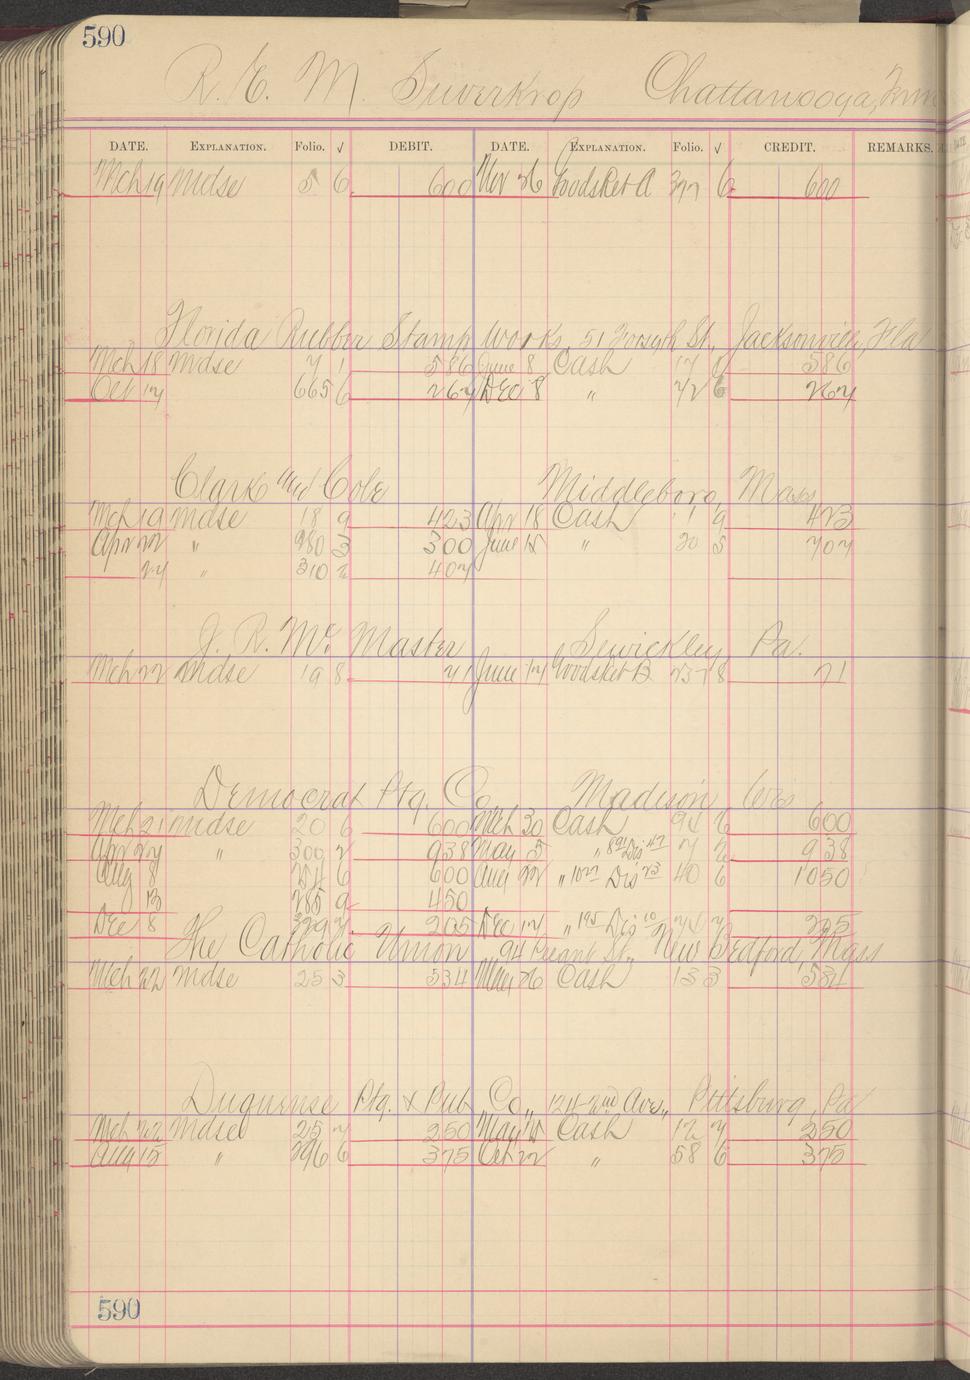 590
R. E. M. Suverkrop Chattanooga, Tenn
DATE. EXPLANATION. Folio. √ DEBIT. DATE. EXPLANATION. Folio. √ CREDIT. REMARKS.
Mch 19 Mdse 5 6 600 Mar 26 Goods Ret A 377 6 600
Florida Rubber Stamp Works, 51 Forsyth St., Jacksonville, Fla
Mch 18 Mdse 7 1 586 June 8 Cash 17 586
Oct 17 665 6 267 Dec 8 " 72 6 267
Clark and Cole Middleboro, Mass
Mch 19 Mdse 18 9 423 Apr 18 Cash 1 9 423
Apr 22 " 280 3 300 June 15 " 20 5 707
27 " 310 2 407
J. R. McMaster Sewickley Pa.
Mch 22 Mdse 19 8 71 June 17 Goods Ret B 237 8 71
Democrat Ptg. Co Madison Wis
Mch 21 Mdse 20 6 600 Mch 30 Cash 94 6 600
Apr 27 " 300 2 938 May 5 " 891 Dis 47 7 2 938
Aug 8 254 6 600 Aug 22 " 1027 Dis 23 40 6 1050
13 285 9 450
Dec 8 329 7 205 Dec 17 " 195 Dis 10 74 7 205
The Catholic Union 94 St., New Bedford, Mass
Mch 22 Mdse 25 3 534 Mar 26 Cash 13 3 534
Duquense Ptg. & Pub Co., 1211-2nd Ave., Pittsburg, Pa
Mch 22 Mdse 25 7 250 May 15 Cash 12 7 250
Aug 15 " 296 6 375 Oct 22 " 58 6 375
590